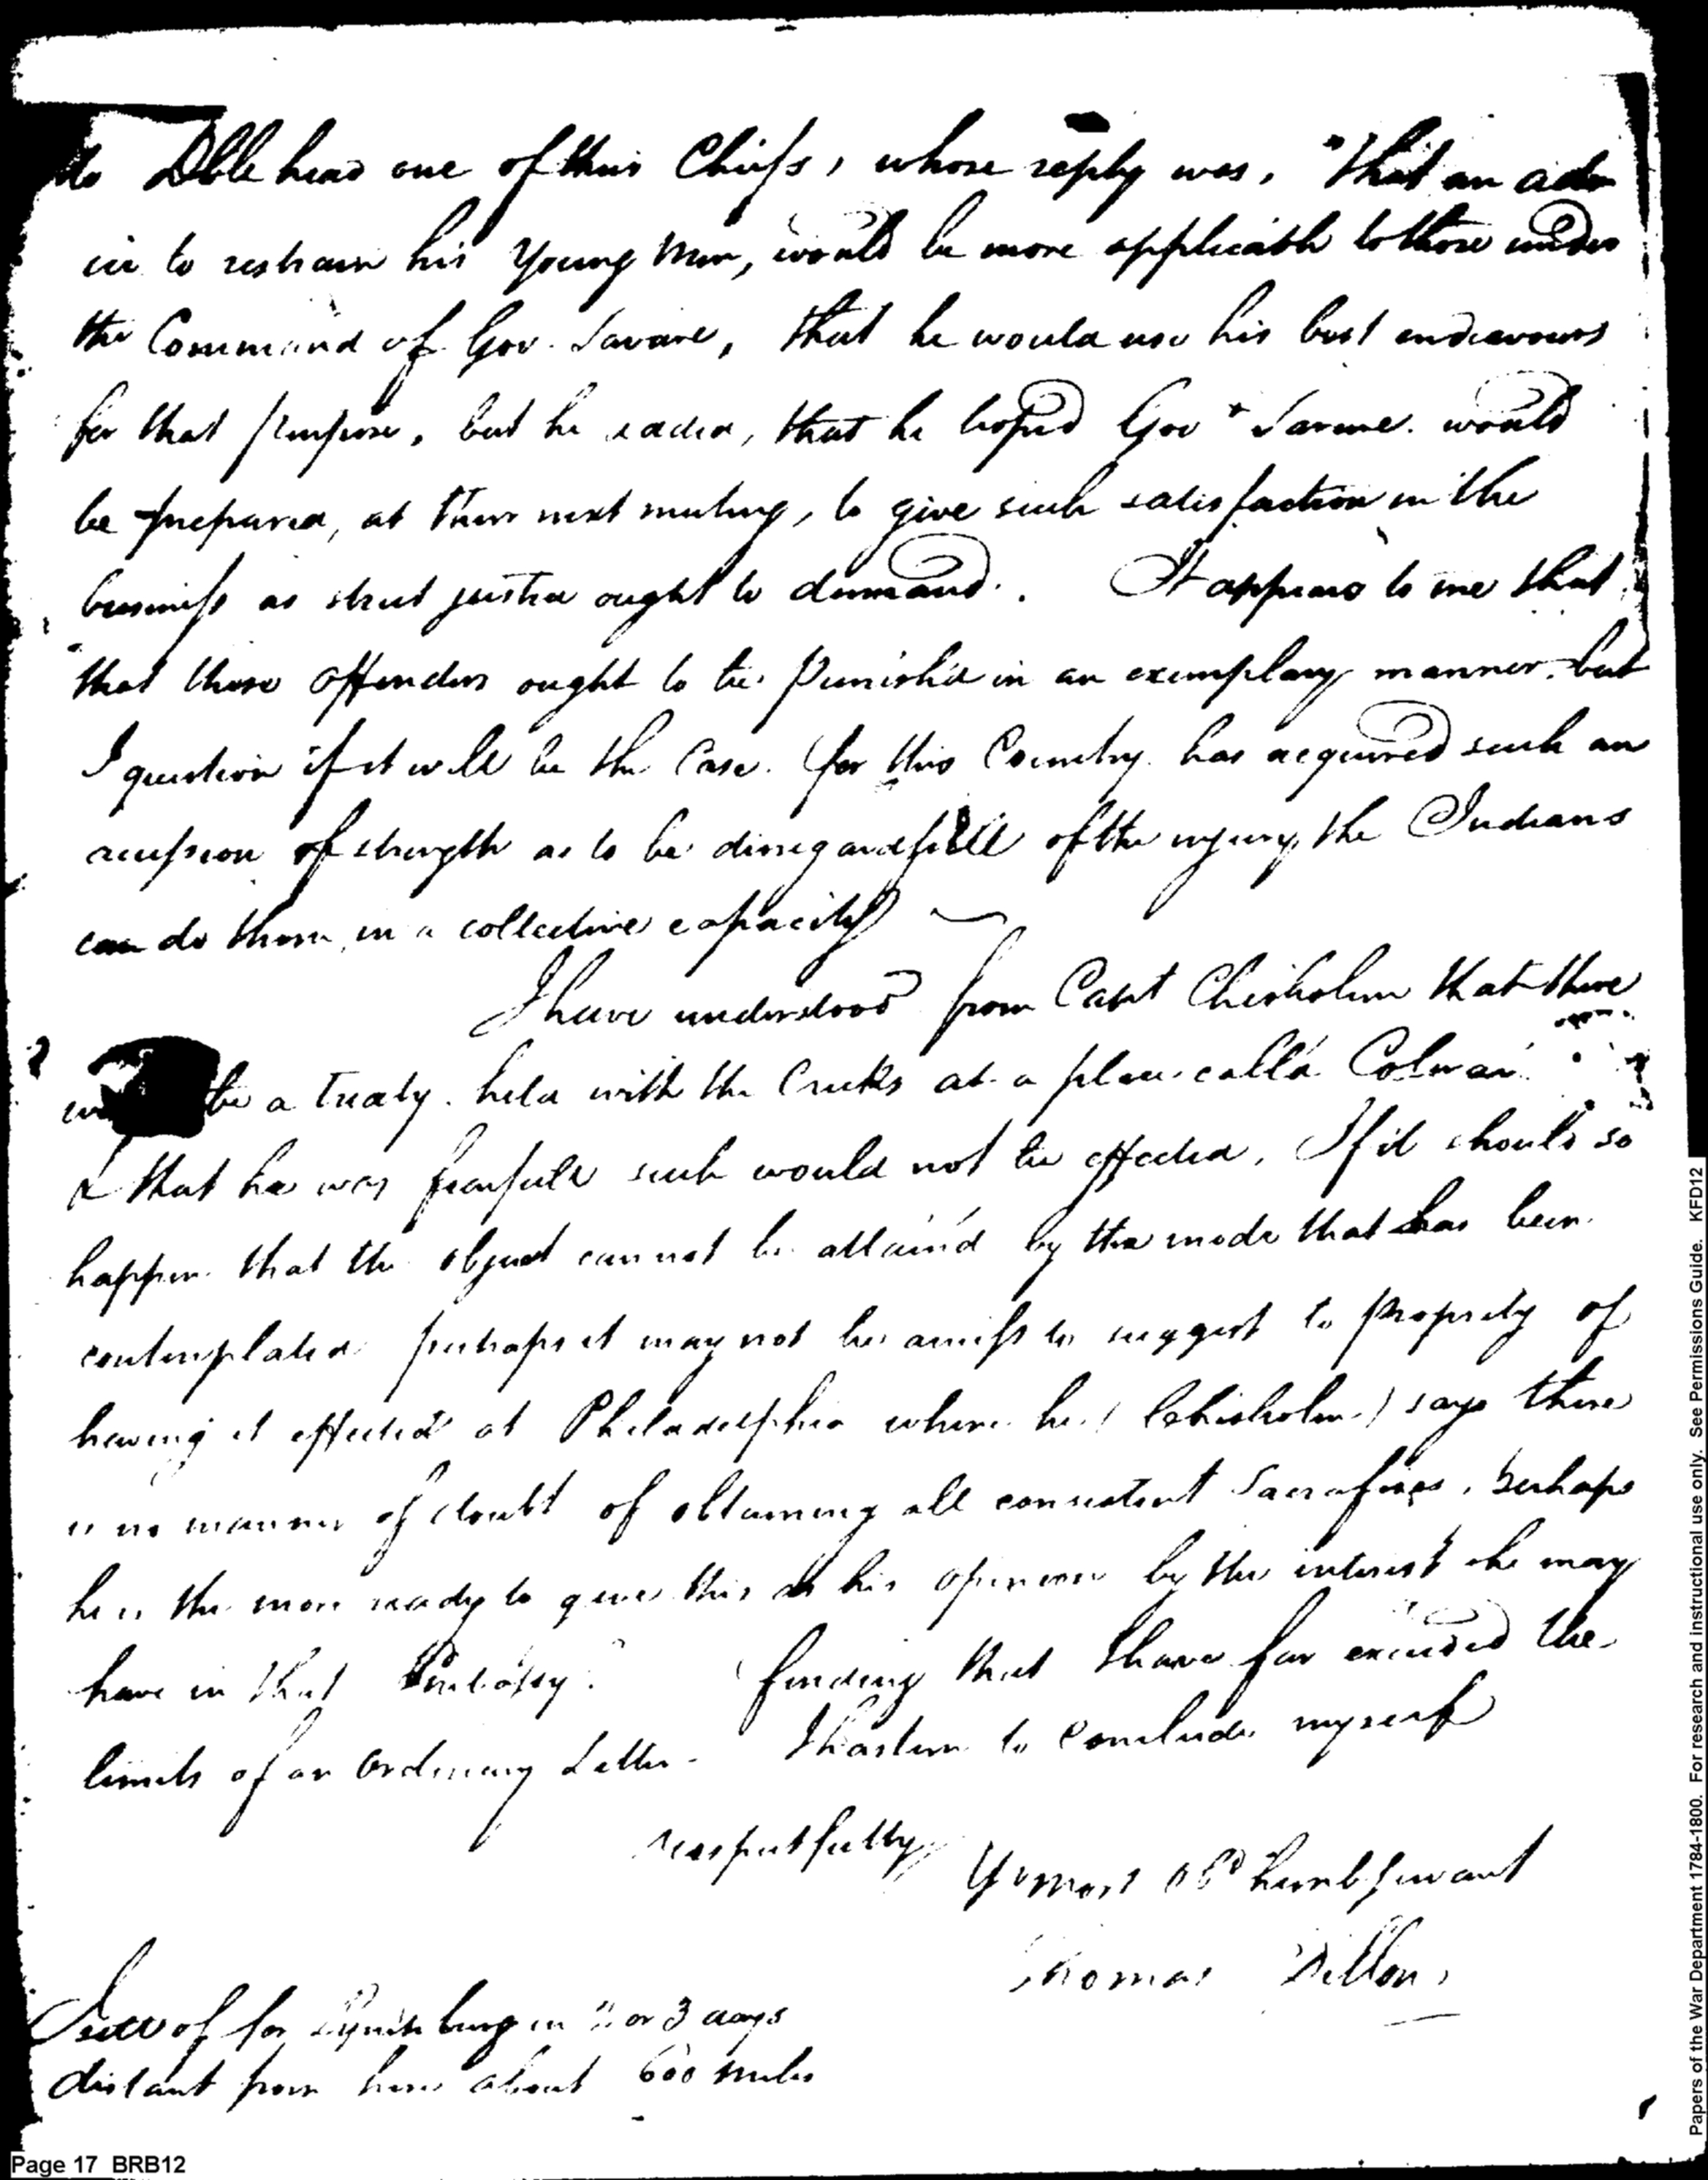 to Dble head one of their Chiefs, whose reply was, "that an adv
ice to restrain his Young Men, would be more applicable to those under
the Command of Gov. Savare, that he would use his best endeavours
for that purpose, but he added, that he hoped Gov r Savare. would
be prepared, at their next meeting, to give such satisfaction in the
business as strict justice ought to demand. It appears to me that
that these offenders ought to be punish'd in an exemplary manner. but
I question if it will be the Case. for this Country has acquired such an
accession of strength as to be disregardfull of the injury, the Indians
can do them, in a collective capacity
I have understood from Capt Chisholm that there
be a treaty. held with the Creeks at a place call'd Colerain
& that he was fearfull such would not be effected, If it should so
happen that the object cannot be attain'd by the mode that has been
contemplated perhaps it may not be amiss to suggest to propriety of
having it effected at Philadelphia where he (Chisholm) says there
is no manner of doubt of obtaining all consistent Sacrafices, perhaps
he is the more ready to give this as his opinion by the interest he may
have in that Embassy. finding that I have far exceeded the
limits of an Ordinary Letter. I hasten to conclude myself
respectfully
Yr most obd humb servant
Thomas Dillon
I sett of for Lynchburg in 2 or 3 days
distant from here about 600 miles
Page 17 BRB12
Papers of the War Department 1784-1800. For research and instructional use only. See Permissions Guide. KFD12